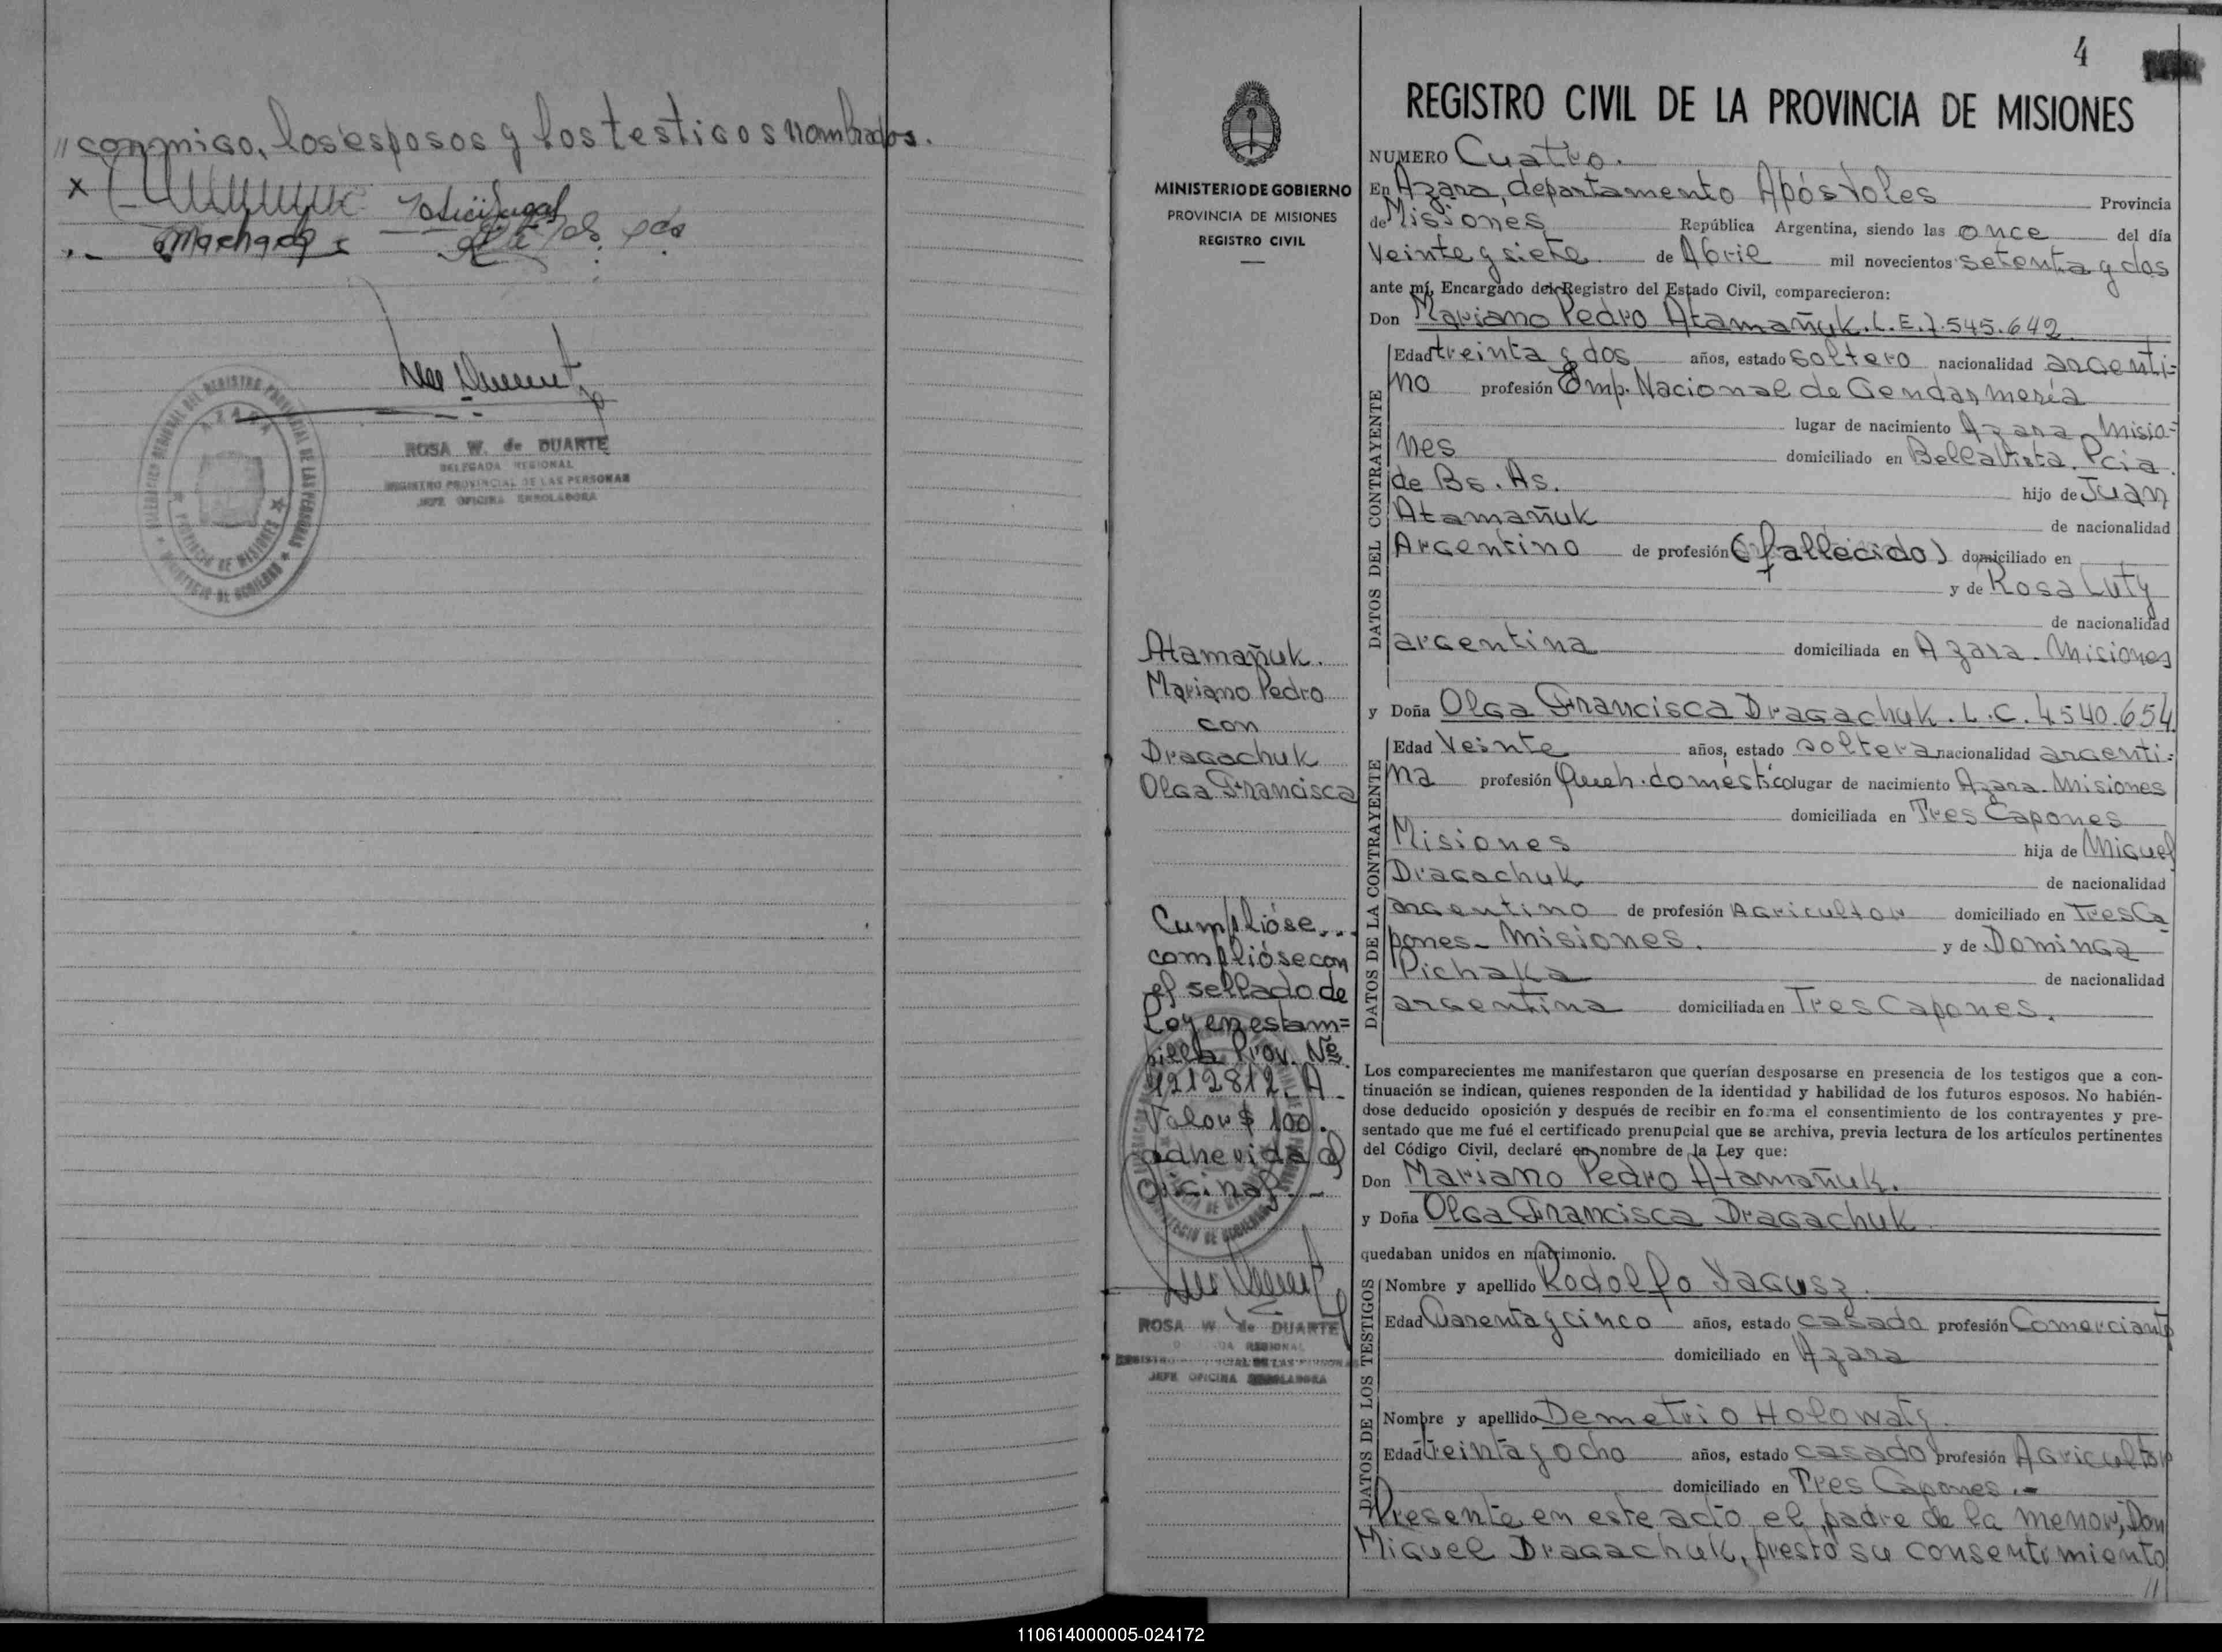 "conmigo, los esposos y los testigos nombrados.
x
Machado
ROSA W. de DUARTE
DELEGADA REGIONAL
REGISTRO PROVINCIAL DE LAS PERSONAS
JEFE OFICINA ENROLADORA
AZARA
PROVINCIA DE MISIONES
4
MINISTERIO DE GOBIERNO
PROVINCIA DE MISIONES
REGISTRO CIVIL
Atamañuk.
Mariano Pedro
con
Dragachuk
Olga Francisca
Cumplióse...
complióse con
el sellado de
Ley en estam=
pilla Prov. Nº
1212812 A
Valor $ 100.
adherida al
original
ROSA W. de DUARTE
REGIONAL
JEFE OFICINA ENROLADORA
REGISTRO CIVIL DE LA PROVINCIA DE MISIONES
NUMERO Cuatro.
En Azara, departamento Apóstoles Provincia
de Misiones República Argentina, siendo las once del día
Veinte y siete de Abril mil novecientos setenta y dos
ante mí, Encargado del Registro del Estado Civil, comparecieron:
Don Mariano Pedro Atamañuk. L.E. 7.545.642
DATOS DEL CONTRAYENTE
Edad treinta y dos años, estado soltero nacionalidad argenti=
no profesión Emp. Nacional de Gendarmería
lugar de nacimiento Azara Misio=
nes domiciliado en Bella Vista. Pcia.
de Bs. As. hijo de Juan
Atamañuk de nacionalidad
Argentino de profesión (fallecido) domiciliado en
y de Rosa Luty
de nacionalidad
argentina domiciliada en Azara. Misiones
y Doña Olga Francisca Dragachuk. L.C. 4540.654
DATOS DE LA CONTRAYENTE
Edad Veinte años, estado soltera nacionalidad argenti=
na profesión Queh. doméstico lugar de nacimiento Azara. Misiones
domiciliada en Tres Capones
Misiones hija de Miguel
Dragachuk de nacionalidad
argentino de profesión Agricultor domiciliado en Tres Ca
pones- Misiones. y de Dominga
Pichaka de nacionalidad
argentina domiciliada en Tres Capones.
Los comparecientes me manifestaron que querían desposarse en presencia de los testigos que a con-
tinuación se indican, quienes responden de la identidad y habilidad de los futuros esposos. No habién-
dose deducido oposición y después de recibir en forma el consentimiento de los contrayentes y pre-
sentado que me fué el certificado prenupcial que se archiva, previa lectura de los artículos pertinentes
del Código Civil, declaré en nombre de la Ley que:
Don Mariano Pedro Atamañuk.
y Doña Olga Francisca Dragachuk
quedaban unidos en matrimonio.
DATOS DE LOS TESTIGOS
Nombre y apellido Rodolfo Yagusz.
Edad Cuarenta y cinco años, estado casado profesión Comerciante
domiciliado en Azara
Nombre y apellido Demetrio Holowaty.
Edad treinta y ocho años, estado casado profesión Agricultor
domiciliado en Tres Capones.-
Presente en este acto el padre de la menor, Don
Miguel Dragachuk, prestó su consentimiento
//
110614000005-024172